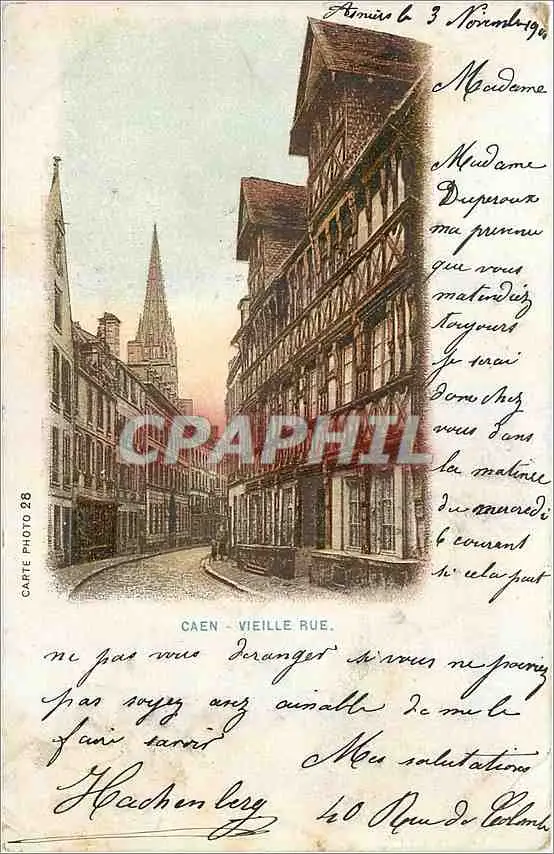 Asnières le 3 Novembre 190
Madame
Madame
Duperoux
ma prevenu
que vous
matendiez
toujours
je serai
donc chez
vous dans
la matinee
du mercredi
6 courant
si cela peut
CPAPHIL
CARTE PHOTO 28
CAEN - VIEILLE RUE.
ne pas vous deranger si vous ne pouviez
pas soyez asez aimable de me le
faire savoir
Mes salutations
Hachenberg 40 Rue de Colomb